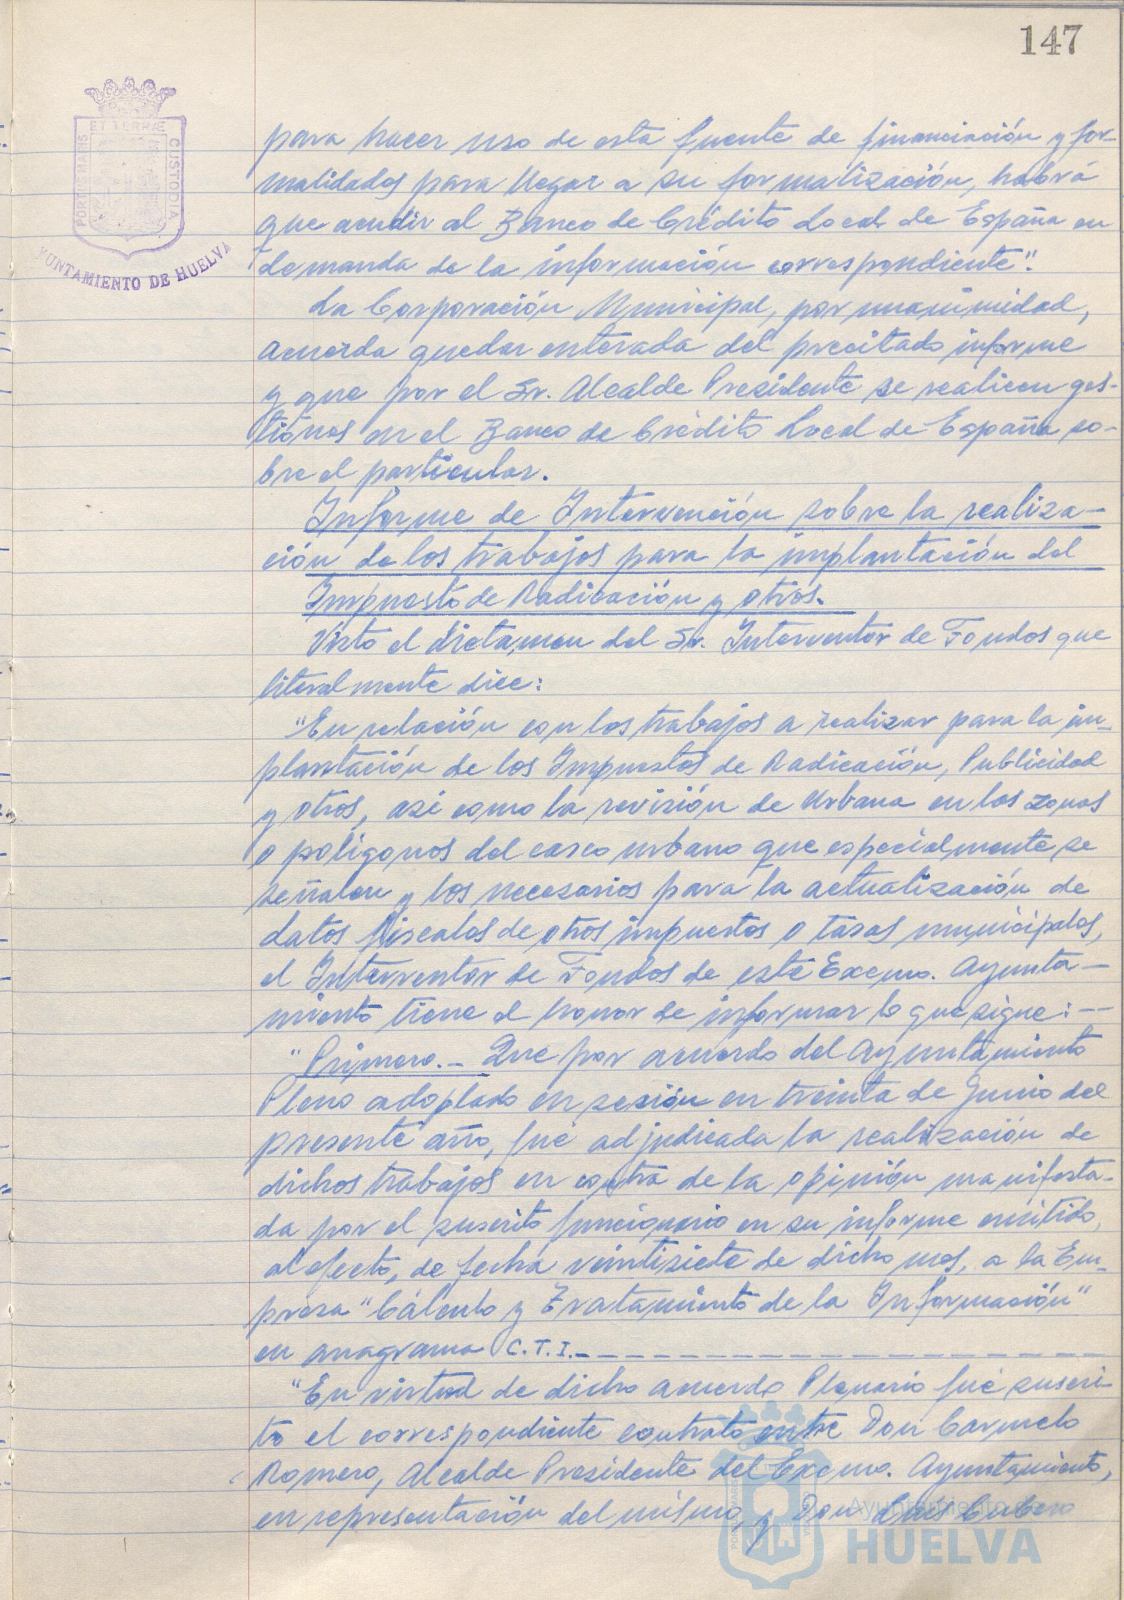 147
PORTUS MARIS ET TERRÆ CUSTODIA
AYUNTAMIENTO DE HUELVA
para hacer uso de esta fuente de financiación y for-
malidades para llegar a su formalización, habrá
que acudir al Banco de Crédito Local de España en
demanda de la información correspondiente".
La Corporación Municipal, por unanimidad,
acuerda quedar enterada del precitado informe
y que por el Sr. Alcalde Presidente se realicen ges-
tiones en el Banco de Crédito Local de España so-
bre el particular.
Informe de Intervención sobre la realiza-
ción de los trabajos para la implantación del
Impuesto de Radicación y otros.
Visto el dictamen del Sr. Interventor de Fondos que
literalmente dice:
"En relación con los trabajos a realizar para la im-
plantación de los Impuestos de Radicación, Publicidad
y otros, así como la revisión de Urbana en las zonas
o polígonos del casco urbano que especialmente se
señalen y los necesarios para la actualización de
datos fiscales de otros impuestos o tasas municipales,
el Interventor de Fondos de este Excmo. Ayunta-
miento tiene el honor de informar lo que sigue: --
"Primero.- Que por acuerdo del Ayuntamiento
Pleno adoptado en sesión en treinta de Junio del
presente año, fué adjudicada la realización de
dichos trabajos en contra de la opinión manifesta-
da por el suscrito funcionario en su informe emitido,
al efecto, de fecha veintisiete de dicho mes, a la Em-
presa "Cálculo y Tratamiento de la Información"
en anagrama C.T.I.- - - - - - - - - - - - - - - - - -
"En virtud de dicho acuerdo Plenario fué suscri-
to el correspondiente contrato entre Don Carmelo
Romero, Alcalde Presidente del Excmo. Ayuntamiento,
en representación del mismo, y Don Luis Cubero
Ayuntamiento de
HUELVA